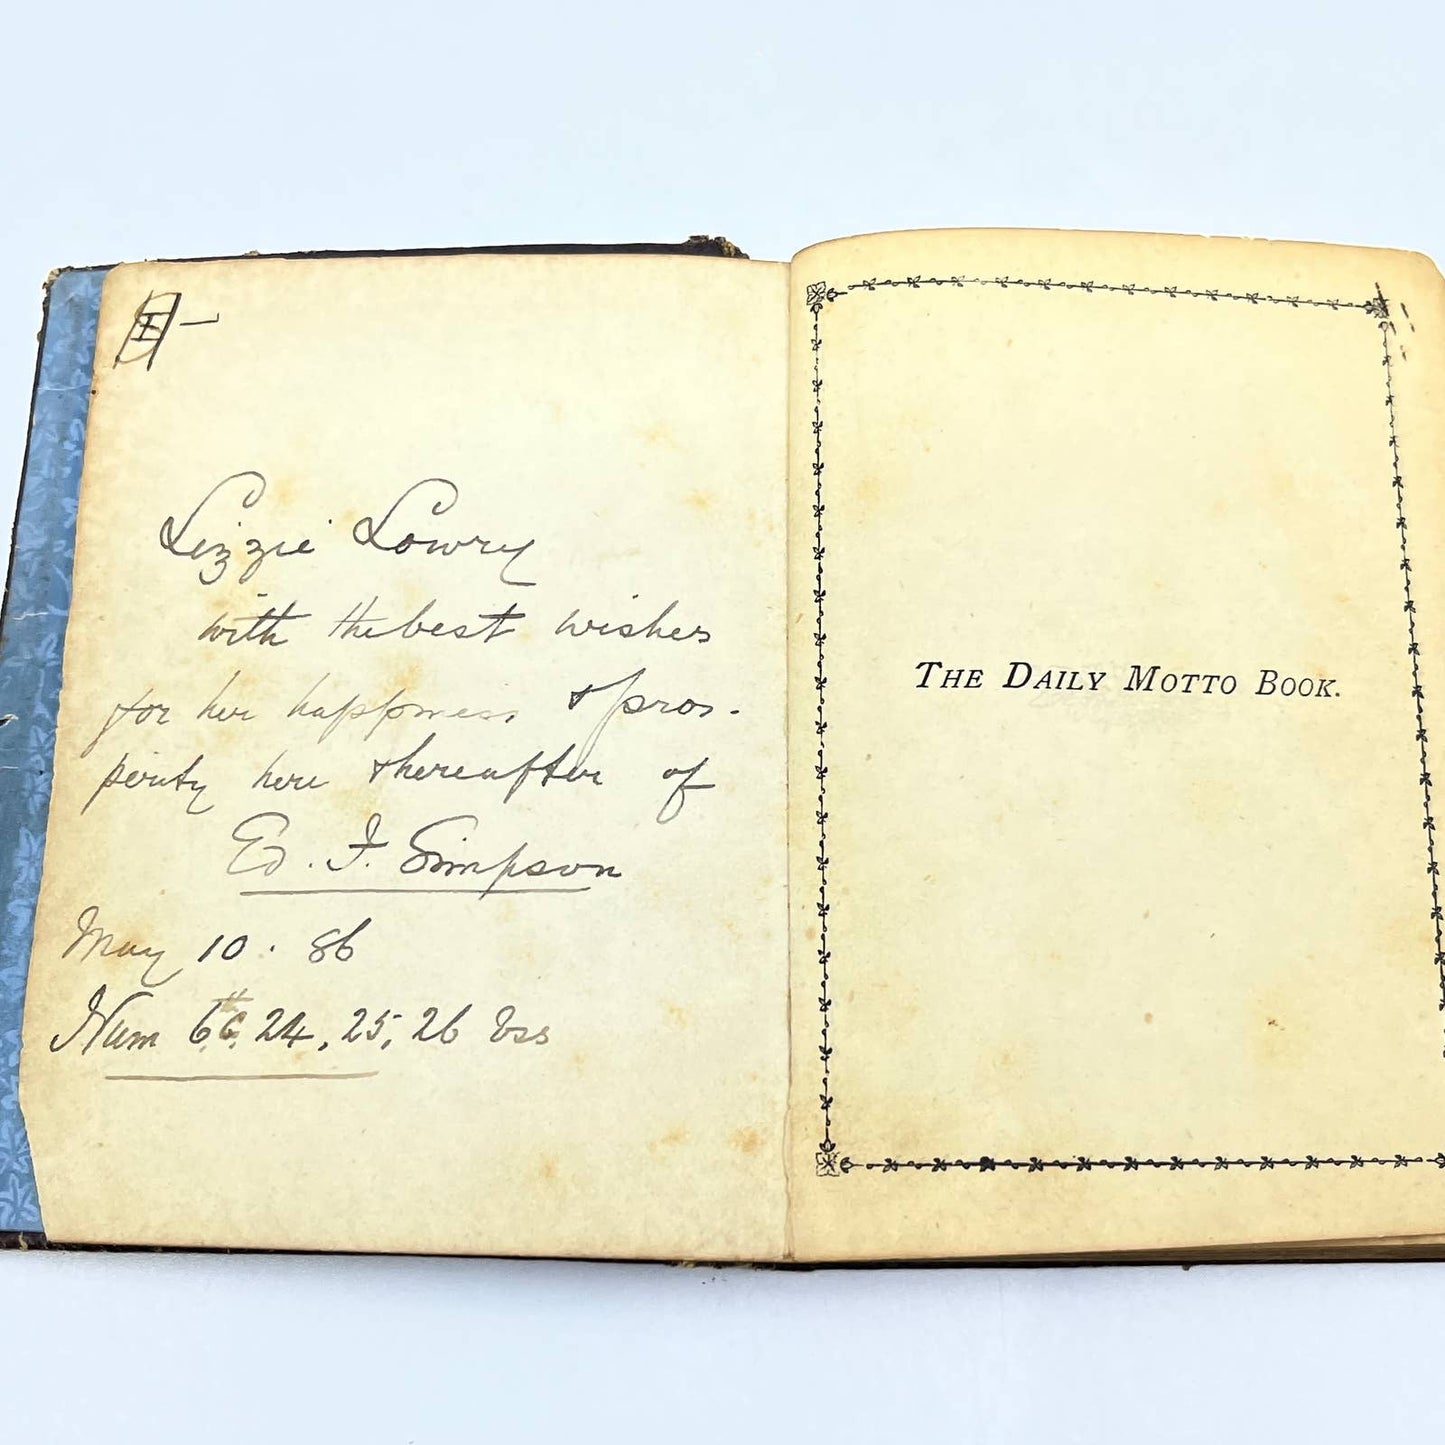 I —
Lizzie Lowry
with the best wishes
for her happiness & pros-
perity here & hereafter of
Ed. F. Simpson
May 10. 86
Num 6th C. 24, 25, 26 vss
THE DAILY MOTTO BOOK.